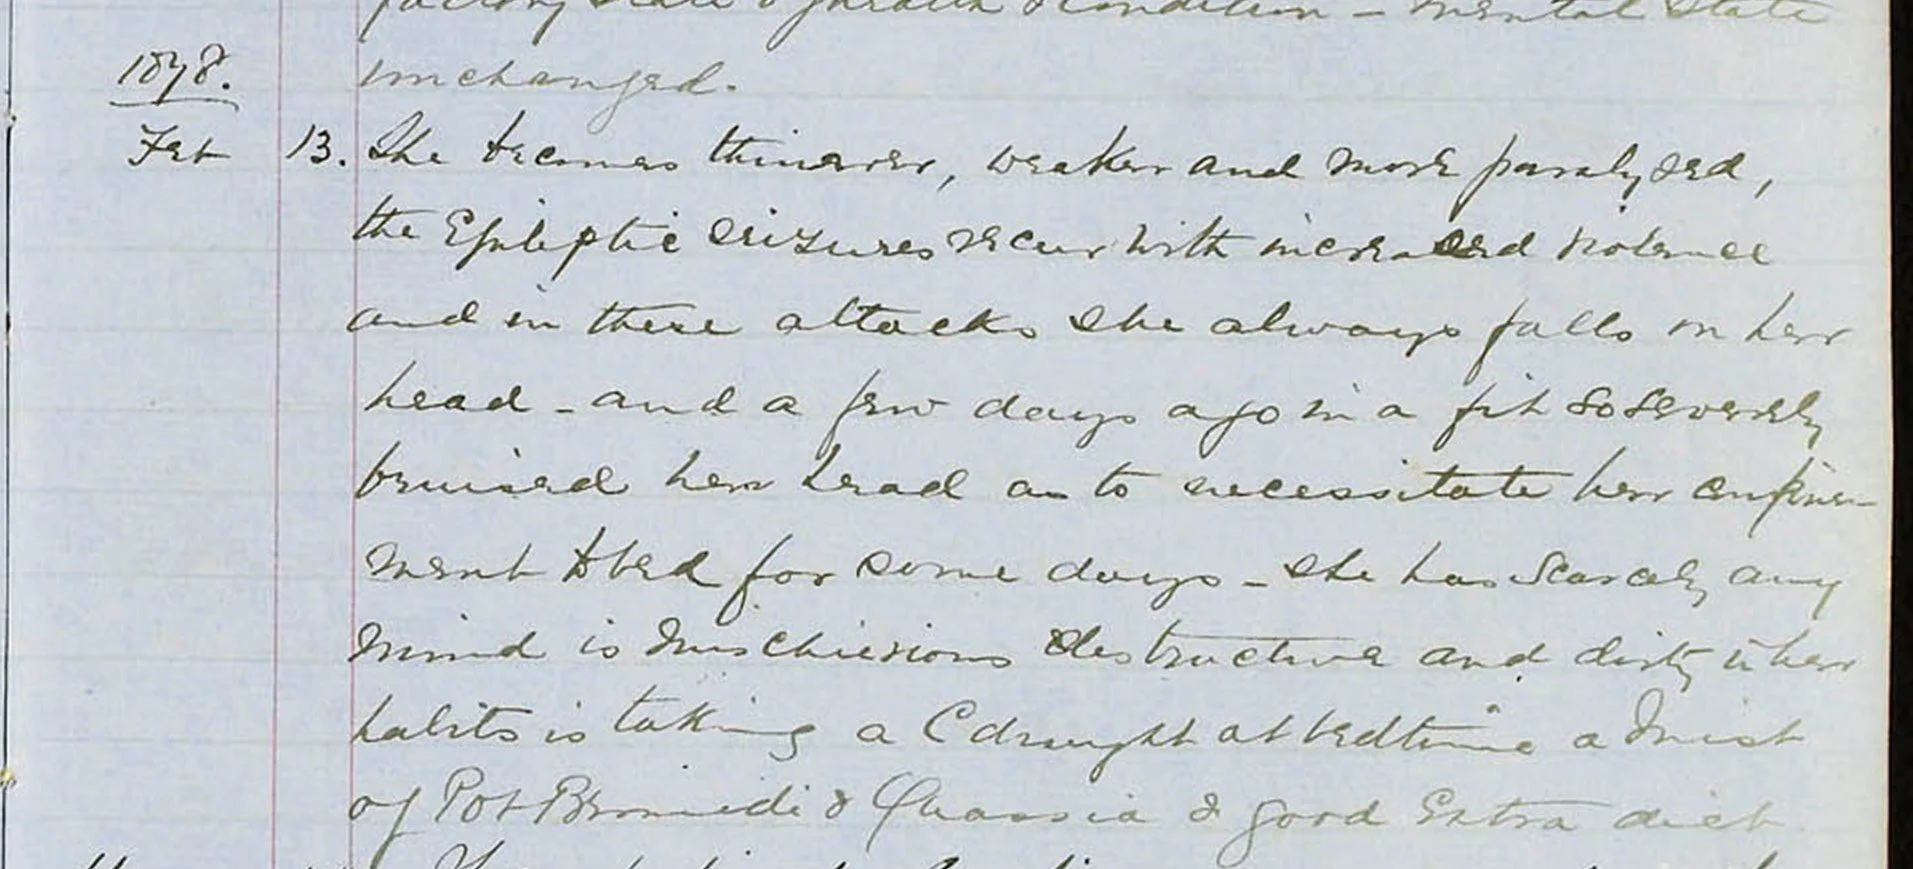 factory state of health & condition – mental state
1878. unchanged.
Feb 13. She becomes thinner, weaker and more paralysed,
the Epileptic seizures recur with increased violence
and in these attacks she always falls on her
head – and a few days ago in a fit so severely
bruised her head as to necessitate her confine-
ment to bed for some days – she has scarcely any
mind is mischievous destructive and dirty in her
habits is taking a C draught at bedtime a Mist
of Pot Bromidi & Quassia & good Extra diet